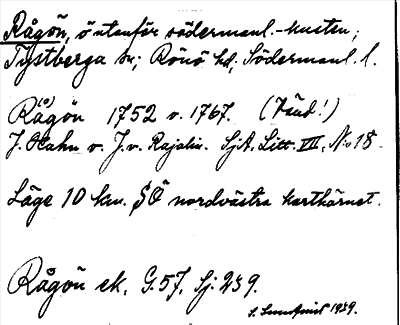 Rågön, ö utanför södermanl.-kusten;
Tystberga sn; Rönö hd; Södermanl. l.
Rå(o)gön 1752 o. 1767. (7 änd!)
J. Hahn o. J. v. Rajalin. SjA. Litt. VII, No 18.
Läge 10 km. SÖ nordvästra karthörnet.
Rågön ek. G. 57, Sj. 239.
S. Lundqvist 1939.